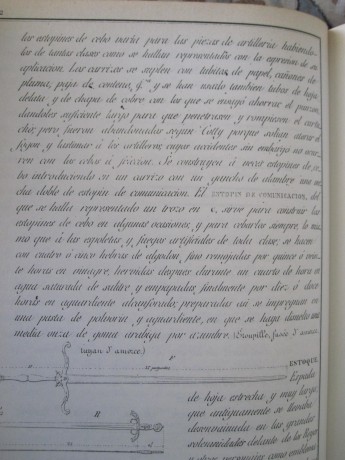 los estopines de cebo varía para las piezas de artillería habiendo-
los de tantas clases como se hallan representados con la espresion de su
aplicacion. Las carrizas se suplen con tubitos de papel, cañones de
pluma, paja de centeno, &.ª y se han usado tambien tubos de hoja
delata y de chapa de cobre con los que se consiguió ahorrar el punzon,
dándoles suficiente largo para que penetrasen y rompiesen el cartu-
cho; pero fueron abandonados segun Cotty porque solian atorar el
fogon y lastimar á los artilleros, cuyos accidentes sin embargo no ocur-
ren con los cebos á friccion. Se construyen á veces estopines de ce-
bo introduciendo en un carrizo con un gancho de alambre una me-
cha doble de estopin de comunicacion. El ESTOPIN DE COMUNICACION, del
que se halla representado un trozo en sirve para construir los
estopines de cebo en algunas ocasiones, y para cebarlos siempre, lo mis-
mo que á las espoletas, y fuegos artificiales de toda clase; se hacen
con cuatro ó cinco hebras de algodon, fino remojadas por quince ó vein-
te horas en vinagre, hervidas despues durante un cuarto de hora en
agua saturada de salitre y empapadas finalmente por diez ó doce
horas en aguardiente alcanforado; preparadas asi se impregnan en
una pasta de polvora y aguardiente, en que se haya disuelto una
media onza de goma arábiga por azumbre. (Etoupille, fusée d'amorce,
tuyau d'amorce.)
ESTOQUE.
Espada
de hoja estrecha y muy larga,
que antiguamente se llevaba
desenvainada en las grandes
solemnidades delante de los Reyes